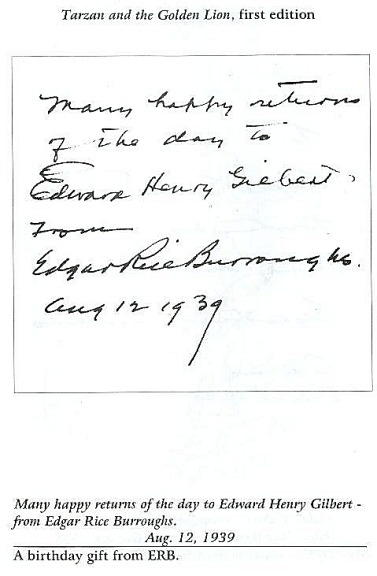 Tarzan and the Golden Lion, first edition
Many happy returns
of the day to
Edward Henry Gilbert -
From
Edgar Rice Burroughs.
Aug 12 1939
Many happy returns of the day to Edward Henry Gilbert -
from Edgar Rice Burroughs.
Aug. 12, 1939
A birthday gift from ERB.